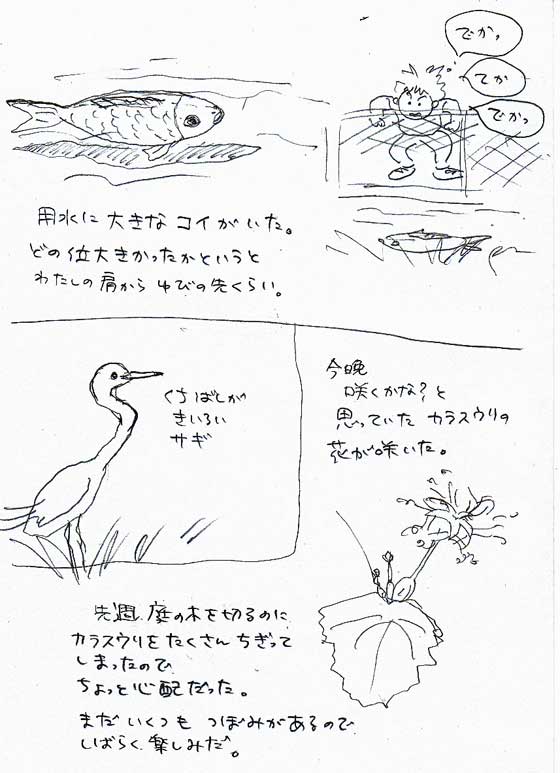 でかっ
てか
でかっ
用水に大きなコイがいた。
どの位大きかったかというと
わたしの肩からゆびの先くらい。
くちばしが
きいろい
サギ
今晩
咲くかな?と
思っていたカラスウリの
花が咲いた。
先週、庭の木を切るのに
カラスウリをたくさんちぎって
しまったので
ちょっと心配だった。
まだいくつもつぼみがあるので
しばらく楽しみだ。